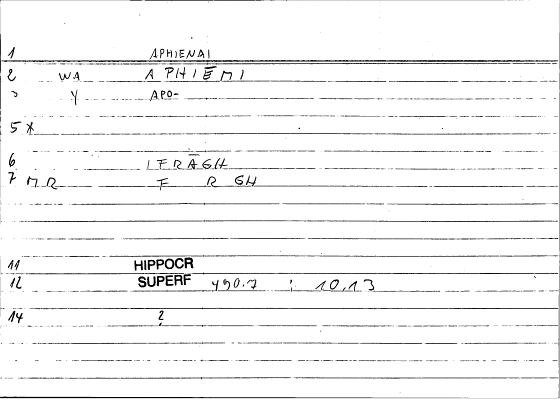 1 APHIENAI
2 WA APHIĒMI
3 Y APO-
5 *
6 IFRĀGH
7 MR F R GH
11 HIPPOCR
12 SUPERF 490.7 : 10,13
14 ?